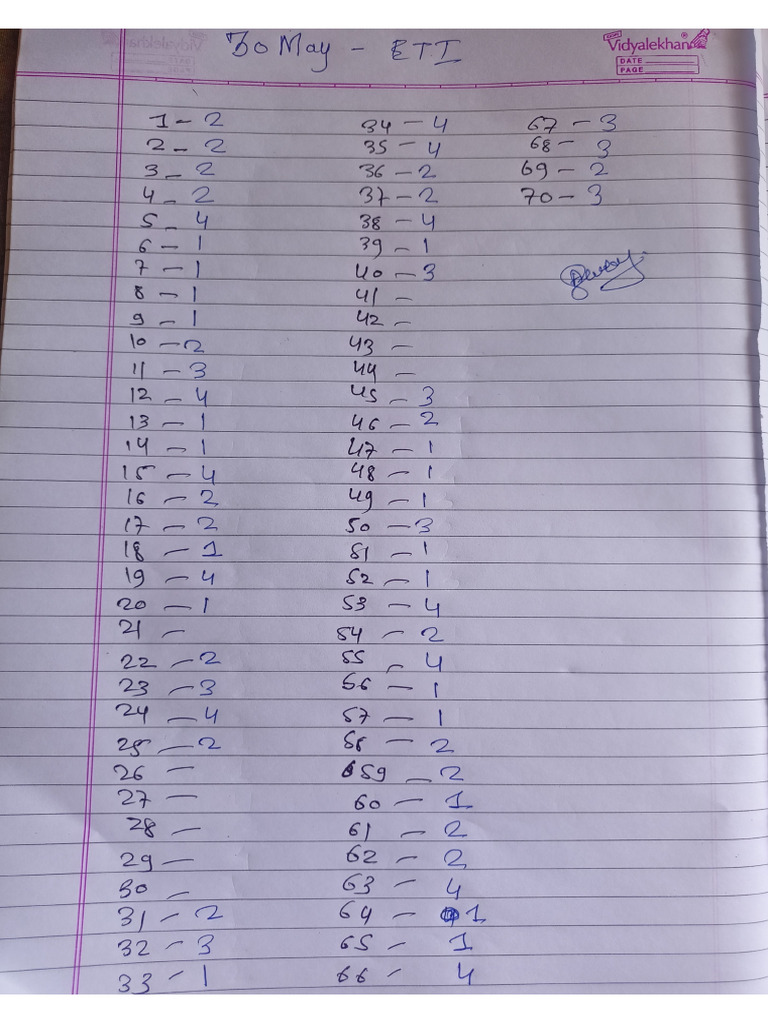 30 May - ETI
Vidyalekhan
DATE
PAGE
1 - 2
2 - 2
3 - 2
4 - 2
5 - 4
6 - 1
7 - 1
8 - 1
9 - 1
10 - 2
11 - 3
12 - 4
13 - 1
14 - 1
15 - 4
16 - 2
17 - 2
18 - 1
19 - 4
20 - 1
21 -
22 - 2
23 - 3
24 - 4
25 - 2
26 -
27 -
28 -
29 -
30 -
31 - 2
32 - 3
33 - 1
34 - 4
35 - 4
36 - 2
37 - 2
38 - 4
39 - 1
40 - 3
41 -
42 -
43 -
44 -
45 - 3
46 - 2
47 - 1
48 - 1
49 - 1
50 - 3
51 - 1
52 - 1
53 - 4
54 - 2
55 - 4
56 - 1
57 - 1
58 - 2
59 - 2
60 - 1
61 - 2
62 - 2
63 - 4
64 - 1
65 - 1
66 - 4
67 - 3
68 - 3
69 - 2
70 - 3